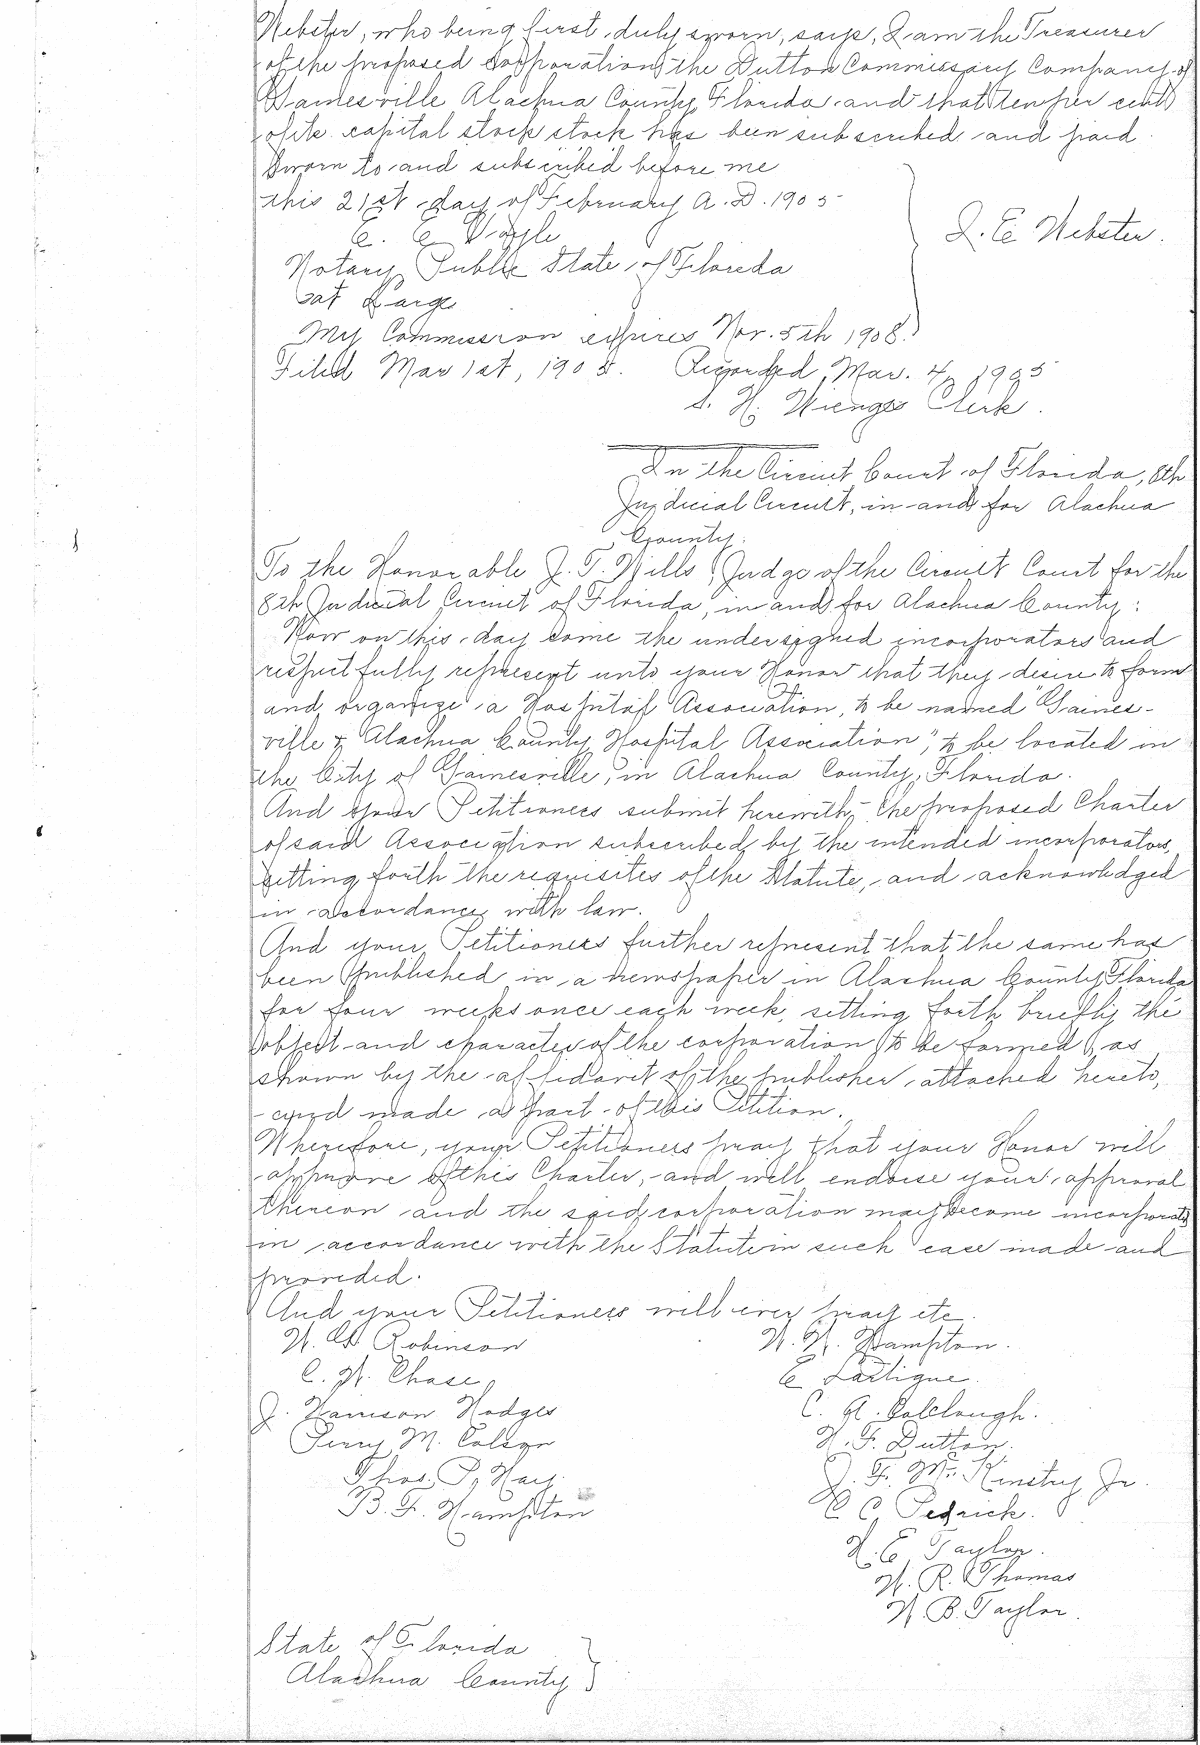 Webster, who being first duly sworn, says, I am the Treasurer
of the proposed corporation, the Dutton Commissary Company of
Gainesville Alachua County, Florida and that ten per cent
of its capital stock stock has been subscribed and paid.
Sworn to and subscribed before me
this 21st day of February A.D. 1905
E. E. Voyle
Notary Public State of Florida
at Large
My Commission expires Nov. 5th 1908.
J. E. Webster.
Filed Mar 1st, 1905. Recorded Mar. 4, 1905
S. H. Wienges Clerk.
In the Circuit Court of Florida, 8th
Judicial Circuit, in and for Alachua
County.
To the Honorable J. T. Wills, Judge of the Circuit Court for the
8th Judicial Circuit of Florida, in and for Alachua County:
Now on this day come the undersigned incorporators and
respectfully represent unto your Honor that they desire to form
and organize a Hospital Association, to be named "Gaines-
ville & Alachua County Hospital Association", to be located in
the City of Gainesville, in Alachua County, Florida.
And your Petitioners submit herewith, the proposed Charter
of said Association subscribed by the intended incorporators,
setting forth the requisites of the Statute, and acknowledged
in accordance with law.
And your Petitioners further represent that the same has
been published in a newspaper in Alachua County, Florida
for four weeks once each week, setting forth briefly the
object and character of the corporation to be formed, as
shown by the affidavit of the publisher, attached hereto,
and made a part of this Petition.
Wherefore, your Petitioners pray that your Honor will
approve of this Charter, and will endorse your approval
thereon and the said corporation may become incorporated
in accordance with the Statute in such case made and
provided.
And your Petitioners will ever pray etc.
W. G. Robinson W. W. Hampton.
C. W. Chase E Lartigue.
J. Harrison Hodges C. A. Colclough.
Perry M. Colson W. F. Dutton.
Thos. P. Hay. J. F. McKinstry Jr.
B. F. Hampton C C Pedrick.
H. E. Taylor.
W. R. Thomas
W. B. Taylor.
State of Florida
Alachua County